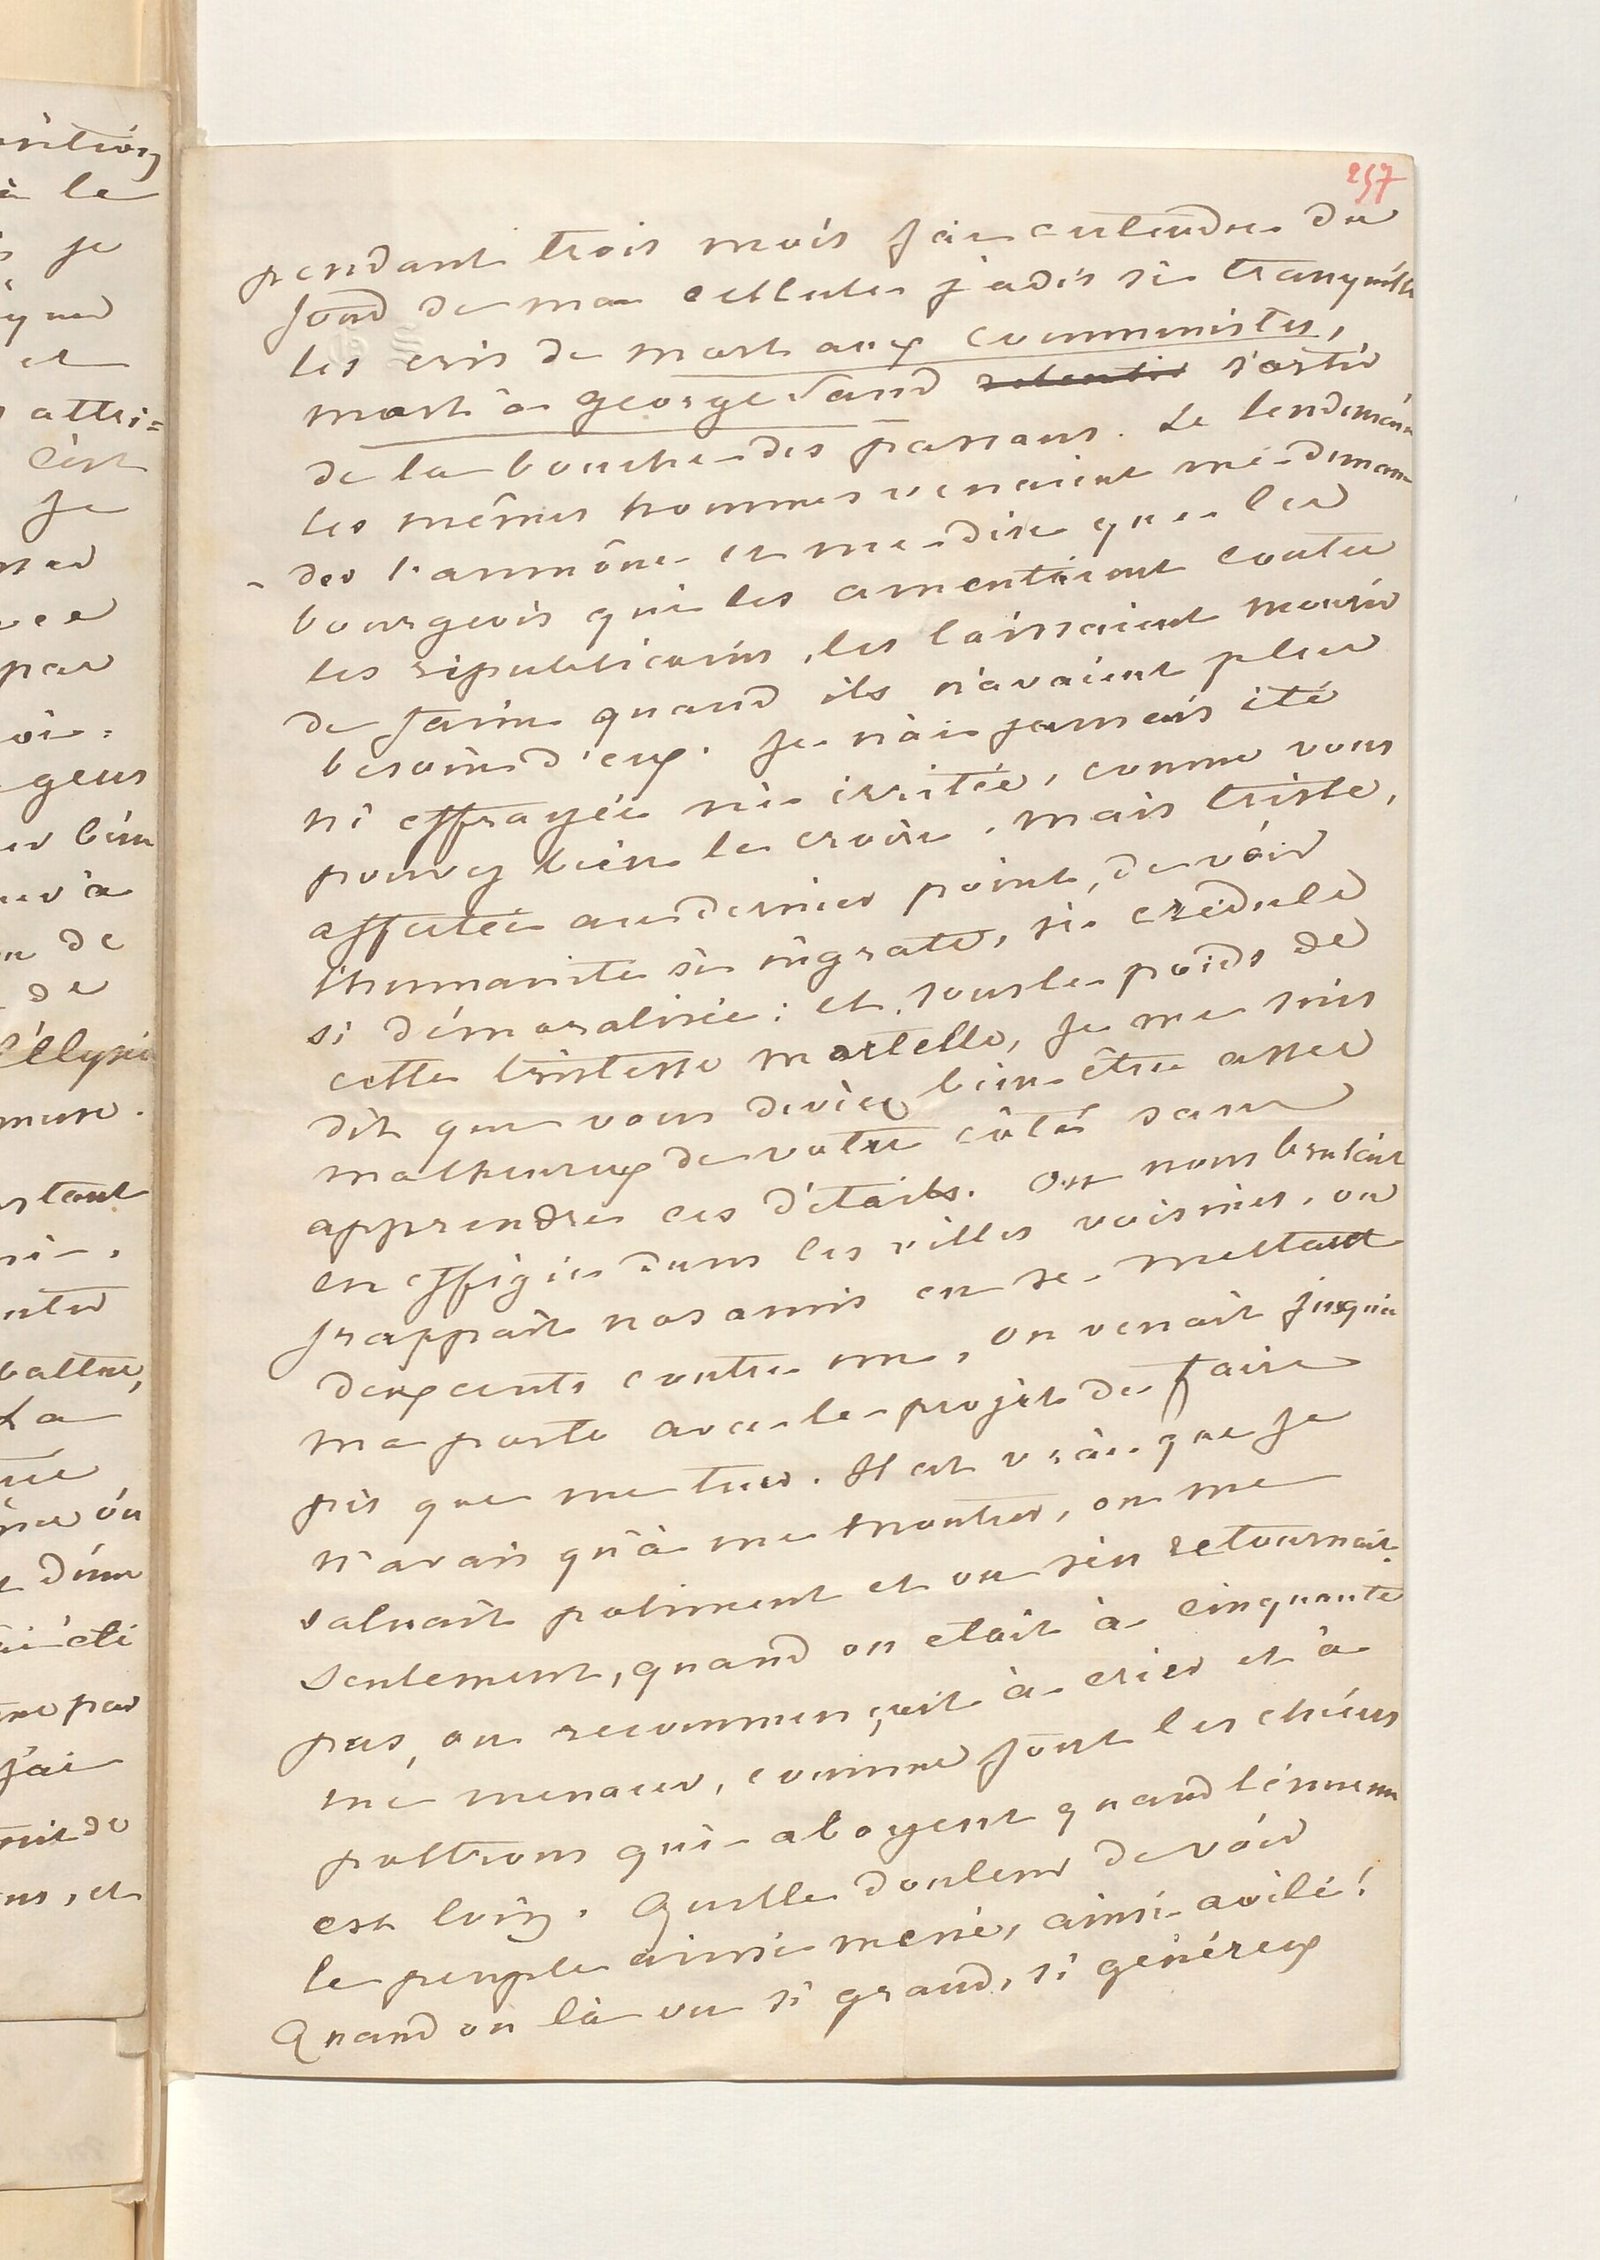 257
pendant trois mois j'ai entendu du
fond de ma cellule jadis si tranquille
les cris de mort aux communistes,
mort à George Sand retentir sortir
de la bouche des passans. Le lendemain
les mêmes hommes venaient me deman
- der l'aumône et me dire que les
bourgeois qui les ameutaient contre
les républicains, les laissaient mourir
de faim quand ils n'avaient plus
besoin d'eux. Je n'ai jamais été
ni effrayée ni irritée, comme vous
pouvez bien le croire. mais triste,
affectée au dernier point, de voir
l'humanité si ingrate, si crédule
si démoralisée: et sous le poids de
cette tristesse mortelle, je me suis
dit que vous deviez bien être assez
malheureux de votre côté sans
apprendre ces détails. On nous brulait
en effigie dans les villes voisines, on
frappait nos amis en se mettant
deux cents contre un, on venait jusqu'à
ma porte avec le projet de faire
pis que me tuer. Il est vrai que je
n'avais qu'à me montrer, on me
saluait poliment et on s'en retournait.
Seulement, quand on était à cinquante
pas, on recommençait à crier et à
me menacer, comme font les chiens
poltrons qui aboyent quand l'ennemi
est loin. Quelle douleur de voir
le peuple ainsi mené, ainsi avili!
Quand on l'a vu si grand, si généreux
à le
je
et
attri=
c'est
je
par
gens
de
de
j'ai